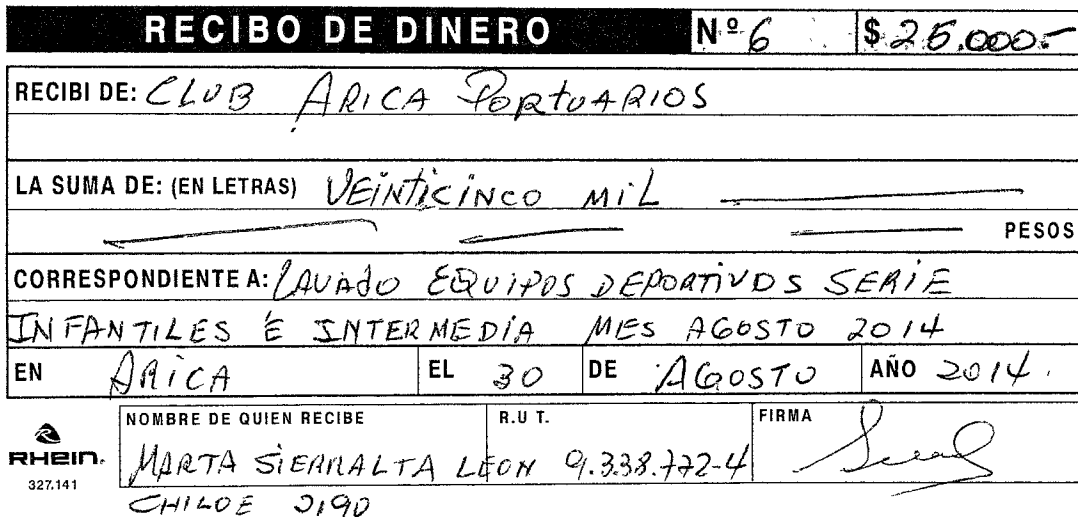 RECIBO DE DINERO Nº 6 $ 25.000.-
RECIBI DE: CLUB ARICA PORTUARIOS
LA SUMA DE: (EN LETRAS) VEINTICINCO MIL
PESOS
CORRESPONDIENTE A: LAVADO EQUIPOS DEPORTIVOS SERIE
INFANTILES E INTERMEDIA MES AGOSTO 2014
EN ARICA EL 30 DE AGOSTO AÑO 2014.
NOMBRE DE QUIEN RECIBE R.U T. FIRMA
RHEIN. MARTA SIERRALTA LEON 9.338.772-4
327.141
CHILOE 2190